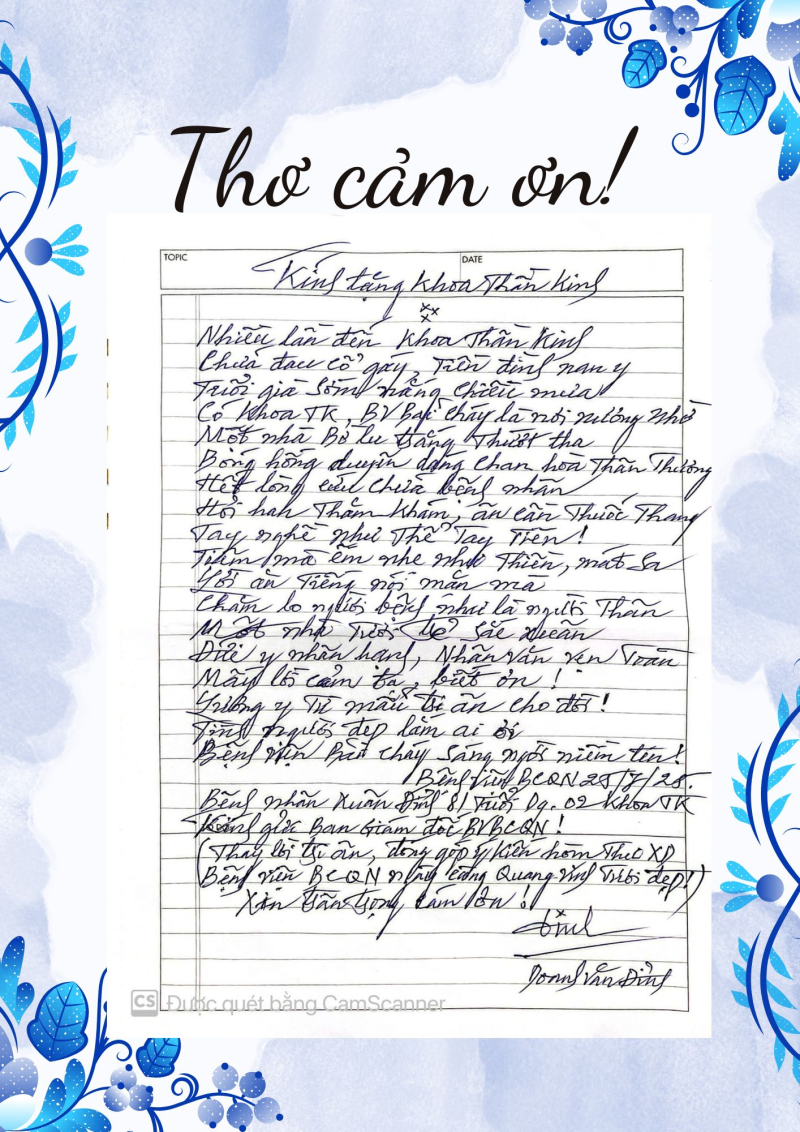 Thơ cảm ơn!
TOPIC
DATE
Kính tặng khoa Thần Kinh
Nhiều lần đến khoa Thần Kinh
Chữa đau cổ gáy, Tiền đình nan y
Tuổi già sớm nắng chiều mưa
Có khoa TK, BV Bãi cháy là nơi nương nhờ
Một nhà Bờ lu trắng Thướt tha
Bóng hồng duyên dáng chan hoà Thân Thương
Hết lòng cứu chữa bệnh nhân
Hỏi han Thăm khám, ân cần Thuốc Thang
Tay nghề như Thể Tay Tiên!
Tiêm mà êm nhẹ như Thiền, mát Sa
Lời ăn Tiếng nói mặn mà
Chăm lo người bệnh như là người Thân
Một nhà Tươi sắc xuân
Đức y nhân hạnh, Nhân văn vẹn Toàn
Mấy lời cảm tạ, biết ơn!
Lương y Từ mẫu tri ân cho đời!
Tình người đẹp lắm ai ơi
Bệnh viện Bãi cháy sáng ngời niềm tin!
Bệnh viện BCQN
Bệnh nhân Xuân Đỉnh 81 Tuổi Dg. 02 Khoa TK
Kính gửi Ban Giám đốc BVBCQN!
(Thay lời tri ân, đóng góp ý kiến hòm Thư
Bệnh viện BCQN ngày càng Quang vinh Tươi đẹp!)
Xin Trân trọng cám ơn!
Doanh Văn Đỉnh
CS Được quét bằng CamScanner